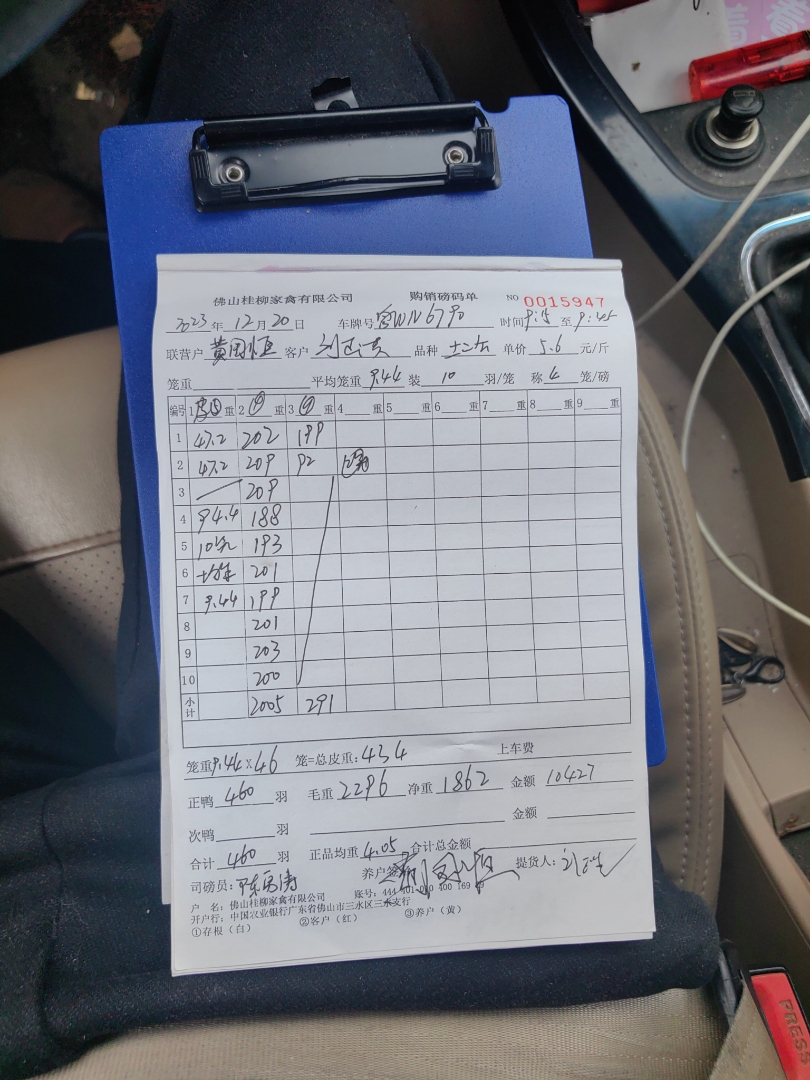 佛山桂柳家禽有限公司 购销磅码单 NO 0015947
2023年12月20日 车牌号 WN6790 时间9:15至9:45
联营户 黄国恒 客户 品种 单价5.6元/斤
笼重 平均笼重 9.44 装 10 羽/笼 称 4 笼/磅
编号 1 皮重 2 重 3 重 4 重 5 重 6 重 7 重 8 重 9 重
1 47.2 202 199
2 47.2 209 92
3 209
4 94.4 188
5 10笼 193
6 均重 201
7 9.44 199
8 201
9 203
10 200
小计 2005 291
笼重9.44×46 笼=总皮重:434 上车费
正鸭 460 羽 毛重2296 净重1862 金额10427
次鸭 羽 金额
合计 460 羽 正品均重4.05 合计总金额
司磅员: 养户签 提货人:
户 名:佛山桂柳家禽有限公司 账号:444
开户行:中国农业银行广东省佛山市三水区三水支行
①存根(白) ②客户(红) ③养户(黄)
PRESS